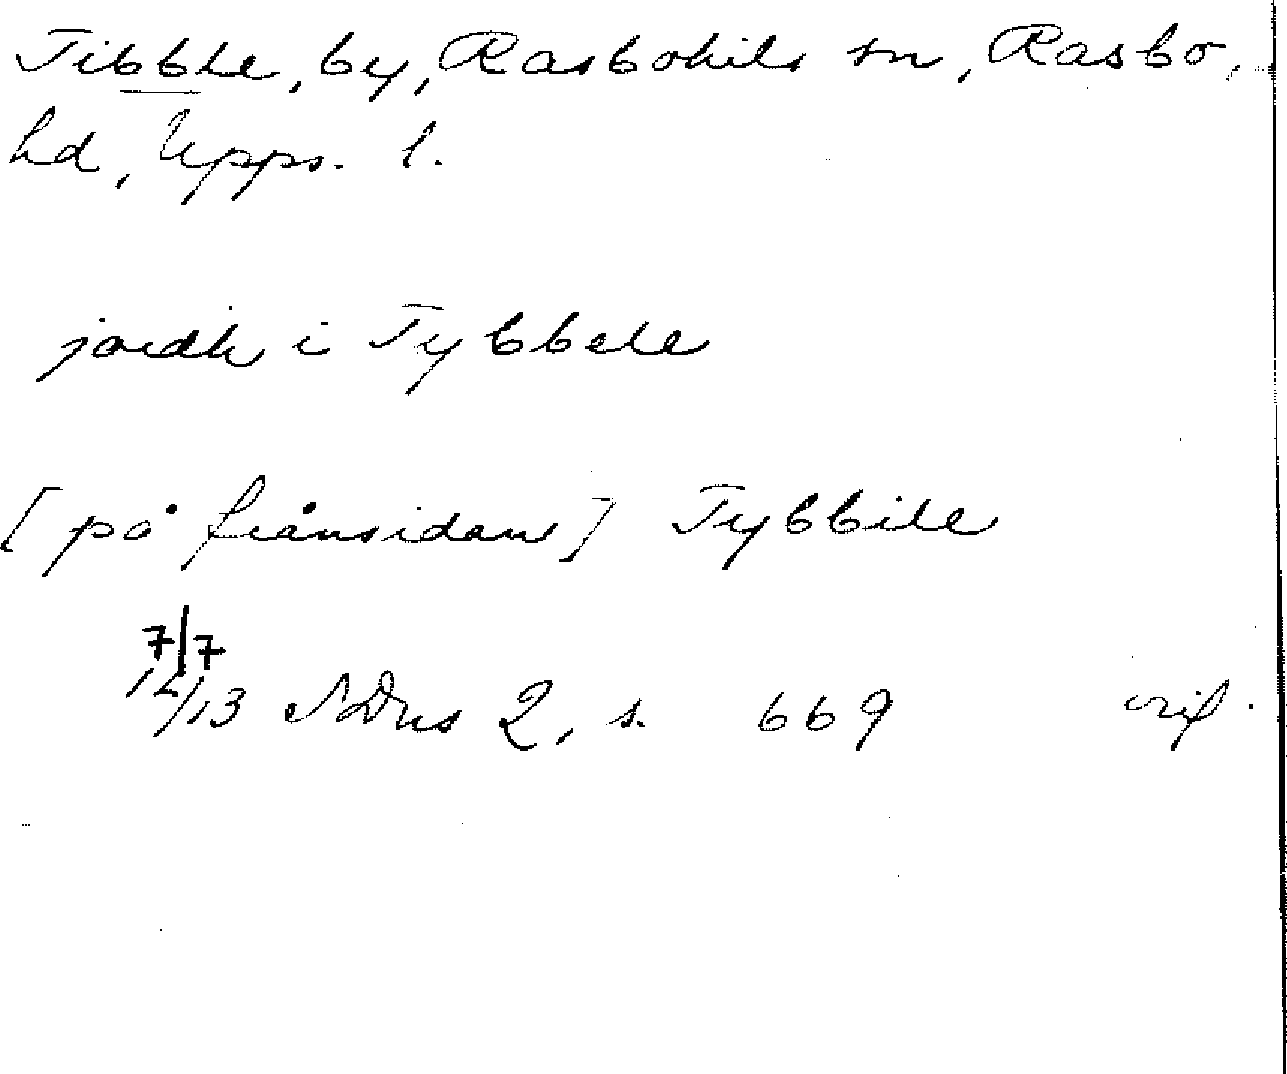 Tibble, by, Rasbokils sn, Rasbo,
hd, Upps. l.
jordh i Tybbele
[på frånsidan] Tybbile
7/7
14/13 SDns 2, s. 669 orig.